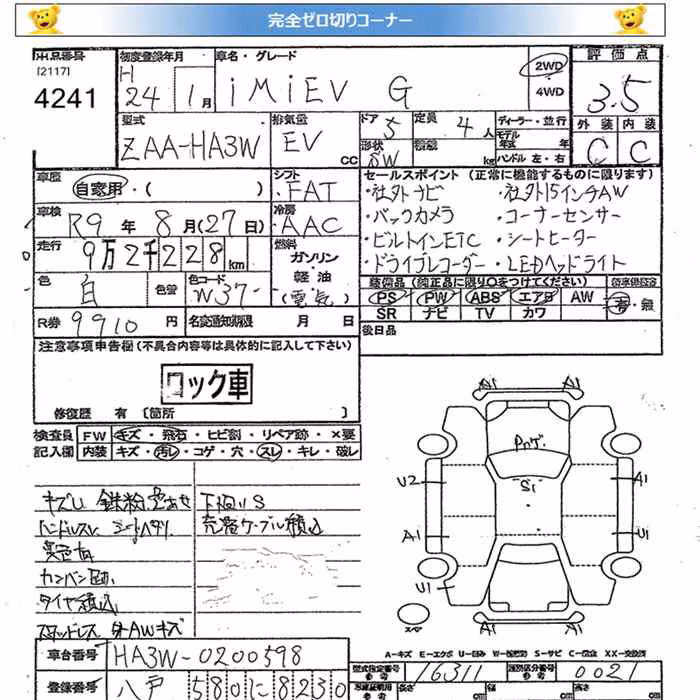 完全ゼロ切りコーナー
出品番号 初度登録年月 車名・グレード 評価点
[2117] H 2WD
4241 24 1月 iMiEV G 4WD 3.5
型式 排気量 ドア 5 定員 4人 ディーラー・並行 外装 内装
ZAA-HA3W EV CC 形状 5W 積載 kg モデル年式 年 ハンドル 左・右 C C
車歴 シフト セールスポイント (正常に機能するものに限ります)
自家用・( ) FAT ・社外ナビ ・社外15インチAW
車検 R9年 8月(27日) 冷房 AAC ・バックカメラ ・コーナーセンサー
走行 9万2千228km 燃料 ガソリン・軽油 (電気) ・ビルトインETC ・シートヒーター
・ドライブレコーダー ・LEDヘッドライト
色 白 色替 色コード W37- 装備品 (純正品に限り○をつけてください)
PS PW ABS エアB AW 有・無
R券 9910円 名変通知期限 月 日 SR ナビ TV カワ
注意事項申告欄(不具合内容等は具体的に記入して下さい) 後日品
ロック車
修復歴 有 〔箇所 〕
検査員 FW キズ・飛石・ヒビ割・リペア跡・×要
記入欄 内装 キズ・汚レ・コゲ・穴・スレ・キレ・破レ
A1 A1
Pカゲ
U2 S1 A1
A1 U1
U1
A1 A1
キズU 鉄粉 下廻りS
ハンドルスレ シートヘタリ 充電ケーブル積込
タイヤ積込
スタッドレス 外AWキズ
A-キズ E-エクボ U-凹み W-板金跡 S-サビ C-腐食 XX-交換済
車台番号 HA3W-0200598 型式指定番号 参考 16311 類別区分番号 参考 0021
登録番号 八戸 580に8230 長さ cm 幅 cm 高さ cm